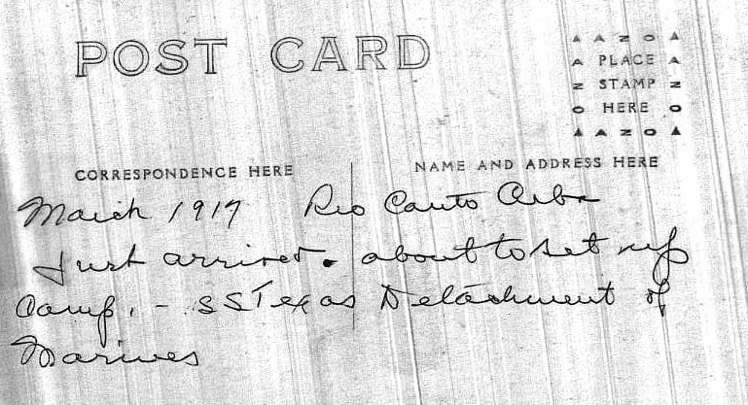 POST CARD
A A Z O A
A PLACE A
Z STAMP Z
O HERE O
A A Z O A
CORRESPONDENCE HERE
NAME AND ADDRESS HERE
March 1917 Rio Cauto Cuba
Just arrived. about to set up
Camp. - SS Texas Detachment of
Marines